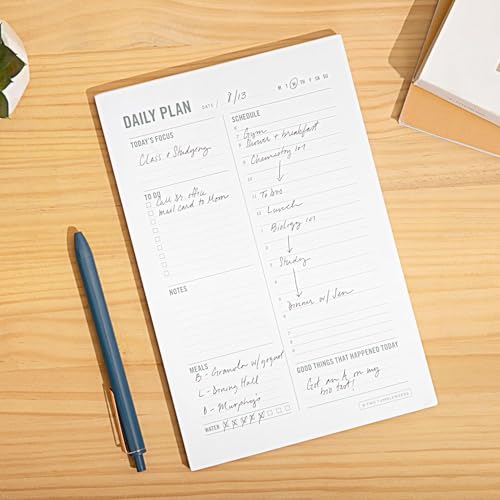 DAILY PLAN
DATE / 8/13
M T W TH F SA SU
TODAY'S FOCUS
Class & Studying
TO DO
Call Dr. office
mail card to Mom
NOTES
MEALS
B - Granola w/ yogurt
L - Dining Hall
D - Murphy's
WATER
SCHEDULE
6
7 Gym
8 Shower + breakfast
9 Chemistry 101
11 To Dos
12 Lunch
1 Biology 101
2
3 Study
4
5 Dinner w/ Jen
6
7
8
9
GOOD THINGS THAT HAPPENED TODAY
Got an A on my
bio test!